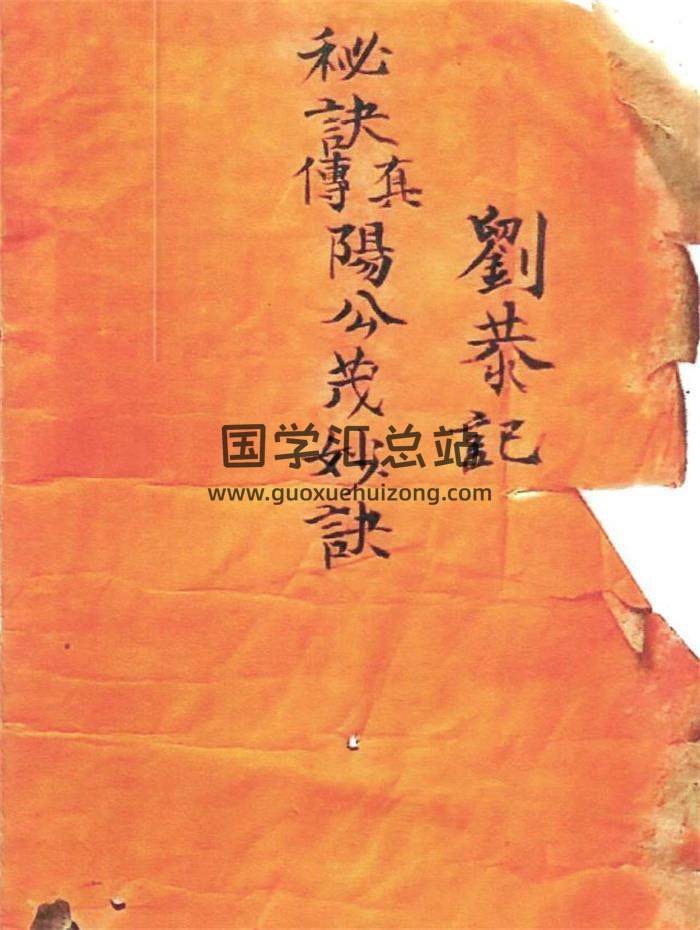 劉恭記
秘訣真傳陽公茂妙訣
国学汇总站
www.guoxuehuizong.com